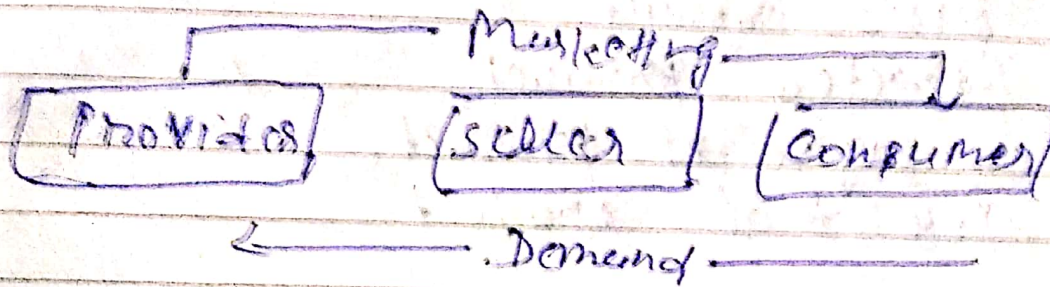 Marketing
Provider Seller Consumer
Demand